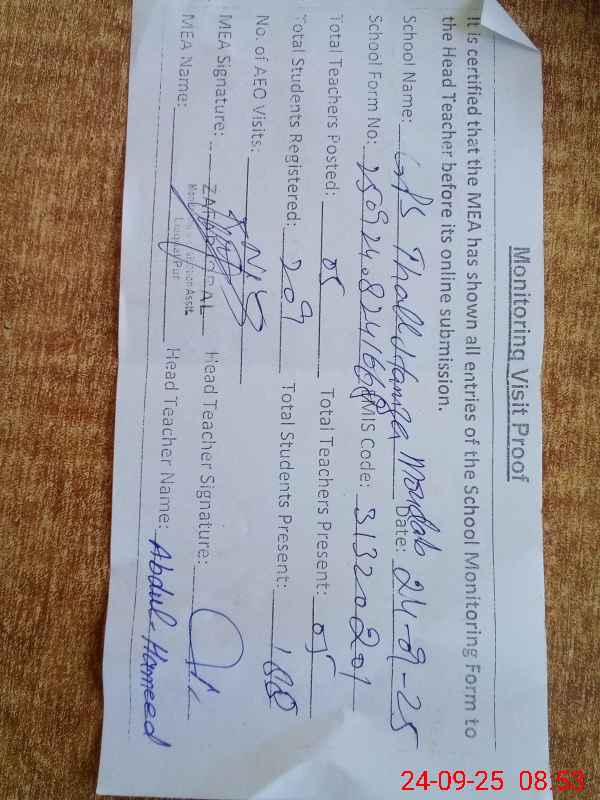 Monitoring Visit Proof
It is certified that the MEA has shown all entries of the School Monitoring Form to
the Head Teacher before its online submission.
School Name: GPS Thalli Date: 24-9-25
School Form No: EMIS Code: 31320201
Total Teachers Posted: 05 Total Teachers Present: 05
Total Students Registered: 209 Total Students Present:
No. of AEO Visits:
MEA Signature: Head Teacher Signature:
MEA Name: Head Teacher Name: Abdul Hameed
24-09-25 08:53